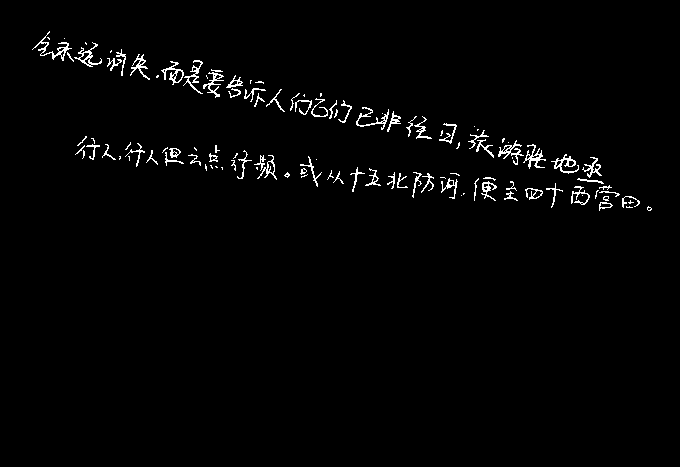 会永远消失.而是要告诉人们它们已非往日,旅游胜地亟
行人,行人但云点行频。或从十五北防河,便至四十西营田。